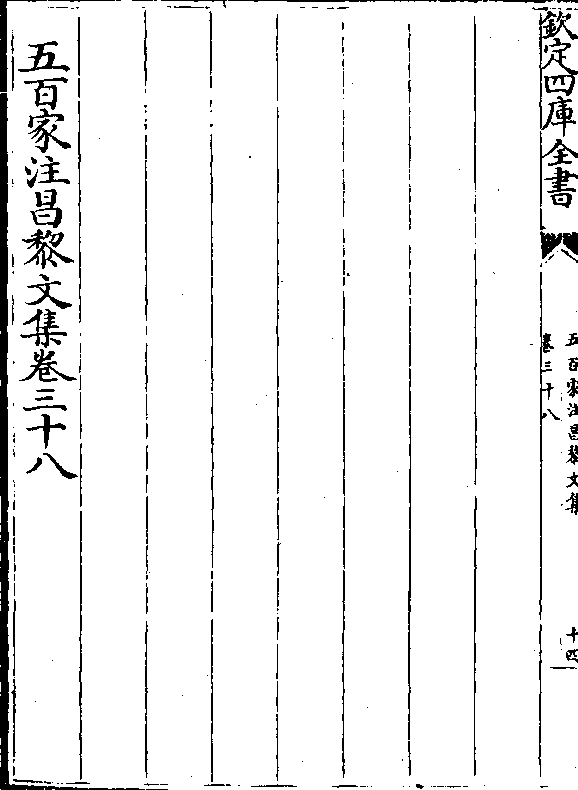 欽定四庫全書
五百家注昌黎文集
卷三十八
十四
五百家注昌黎文集卷三十八